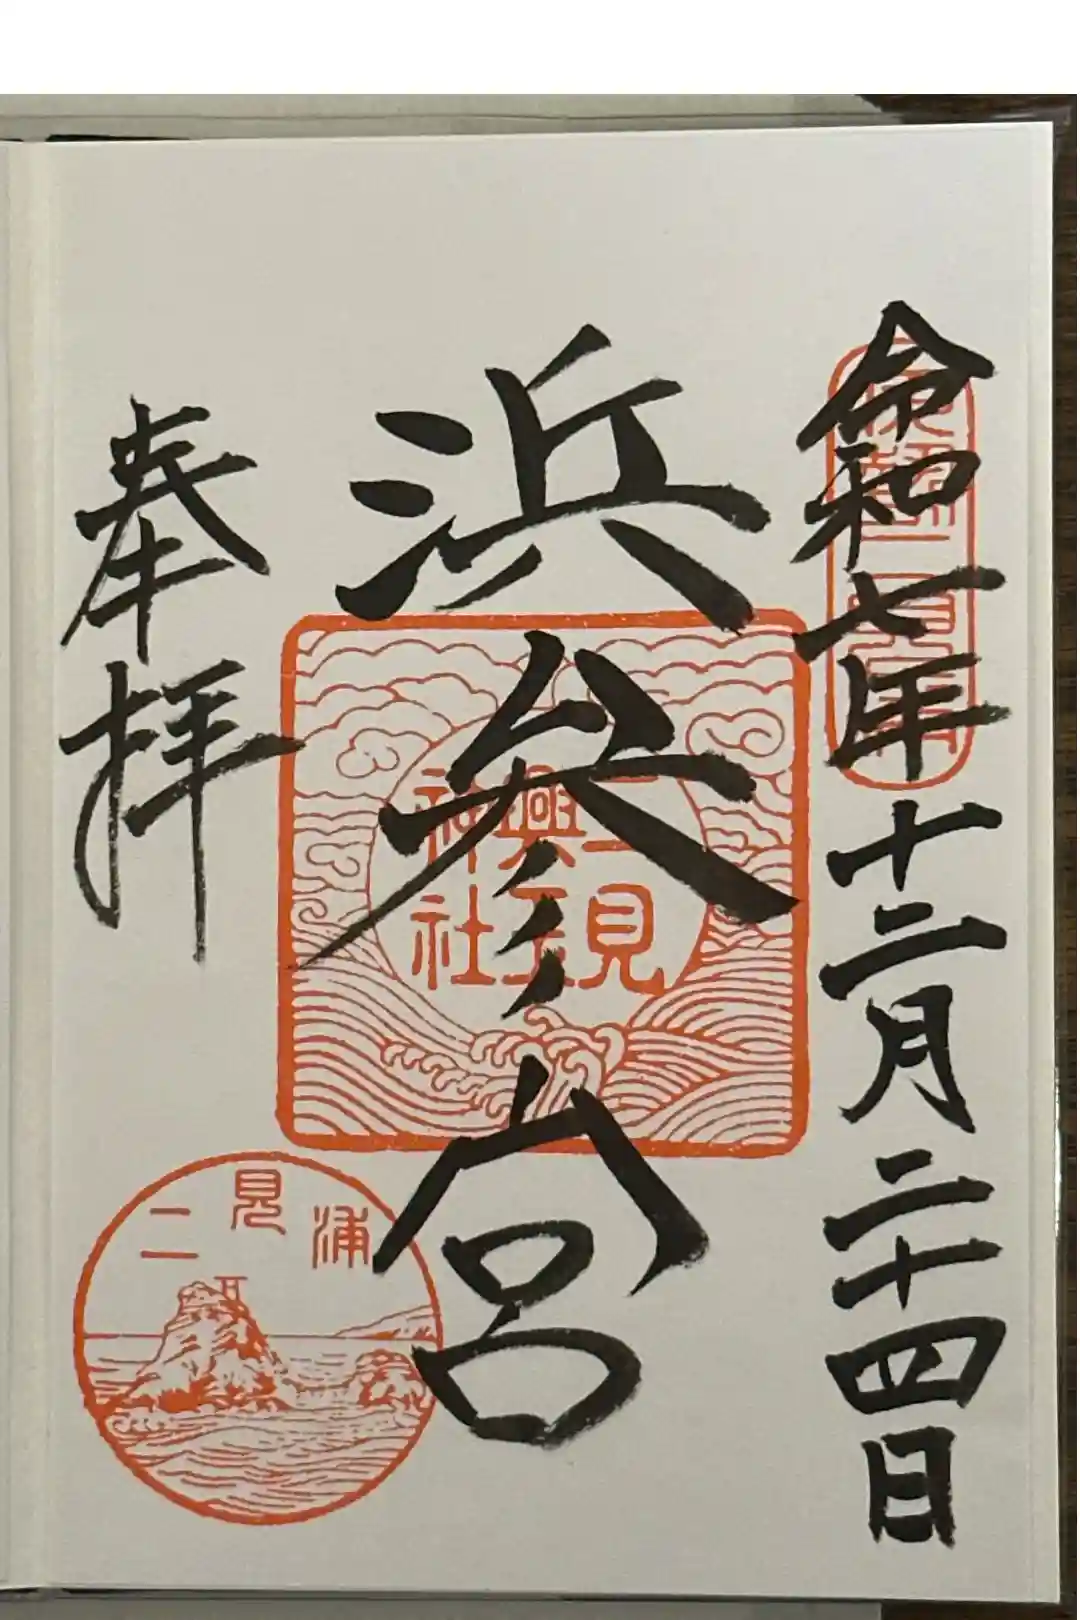 令和七年十二月二十四日
浜参宮
二見興玉神社
奉拝
二見浦